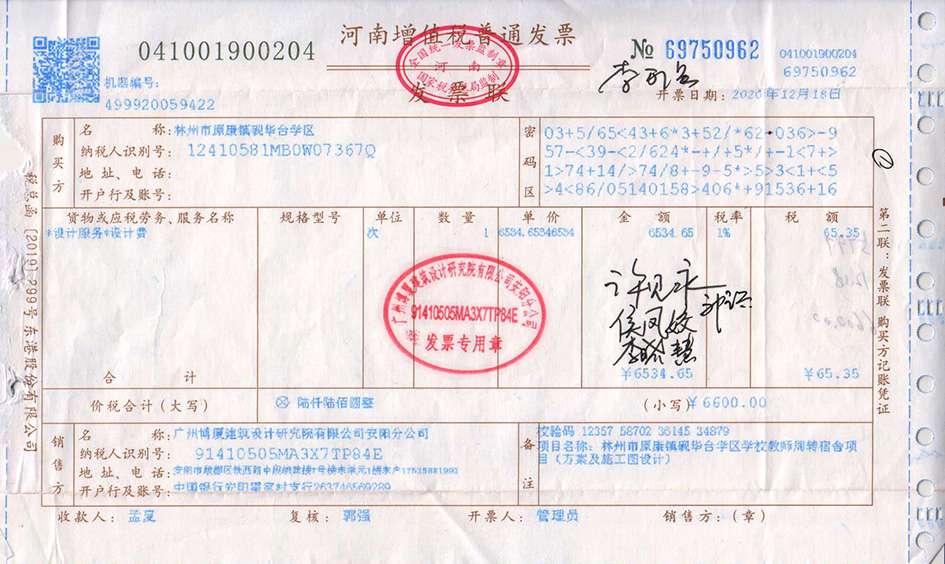 041001900204
河南增值税普通发票
发票联
全国统一发票监制章
河南
国家税务总局监制
№ 69750962
041001900204
69750962
机器编号:
499920059422
开票日期: 2020年12月18日
购买方
名称: 林州市原康镇砚华台学区
纳税人识别号: 12410581MB0W07367Q
地址、电话:
开户行及账号:
密码区
03+5/65<43+6*3+52/*62-036>-9
57-<39-<2/624*-+/+5*/+-1<7+>
1>74+14/>74/8+-9-5*>5>3<1+<5
>4<86/05140158>406*+91536+16
①
货物或应税劳务、服务名称 规格型号 单位 数量 单价 金额 税率 税额
*设计服务*设计费 次 1 6534.65346534 6534.65 1% 65.35
广州博厦建筑设计研究院有限公司安阳分公司
91410505MA3X7TP84E
发票专用章
合计 ¥6534.65 ¥65.35
价税合计（大写） ⊗ 陆仟陆佰圆整 （小写）¥6600.00
销售方
名称: 广州博厦建筑设计研究院有限公司安阳分公司
纳税人识别号: 91410505MA3X7TP84E
地址、电话:
开户行及账号: 263746569289
备注
校验码 12357 58702 36145 34879
项目名称: 林州市原康镇砚华台学区学校教师周转宿舍项
目（方案及施工图设计）
收款人: 孟夏 复核: 郭强 开票人: 管理员 销售方:（章）
税总函〔2019〕299号 东港股份有限公司
第二联：发票联 购买方记账凭证